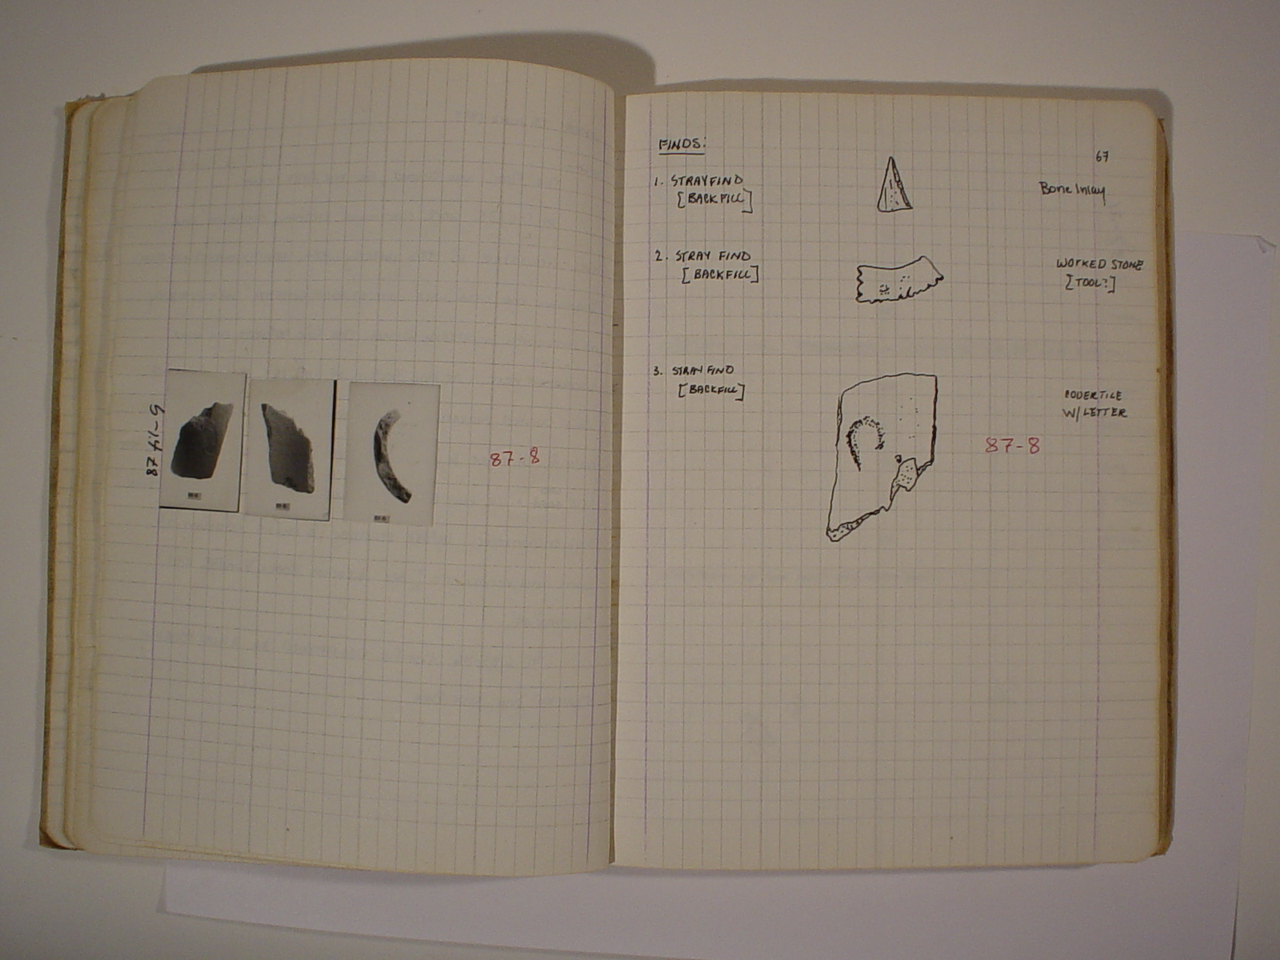 87 f:1-5
87-8
67
FINDS:
1. STRAY FIND
[BACKFILL]
Bone Inlay
2. STRAY FIND
[BACKFILL]
WORKED STONE
[TOOL?]
3. STRAY FIND
[BACKFILL]
W/LETTER
87-8